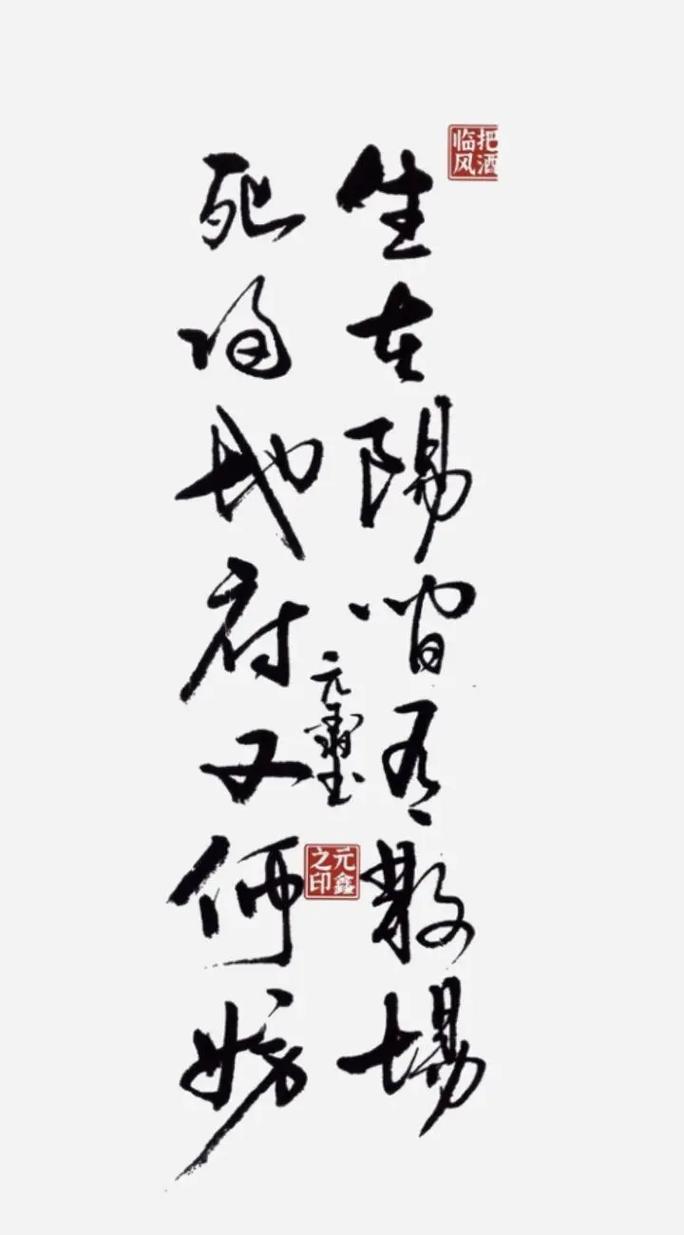 把酒临风
生在陽間有散場
死归地府又何妨
元鑫书
元鑫之印